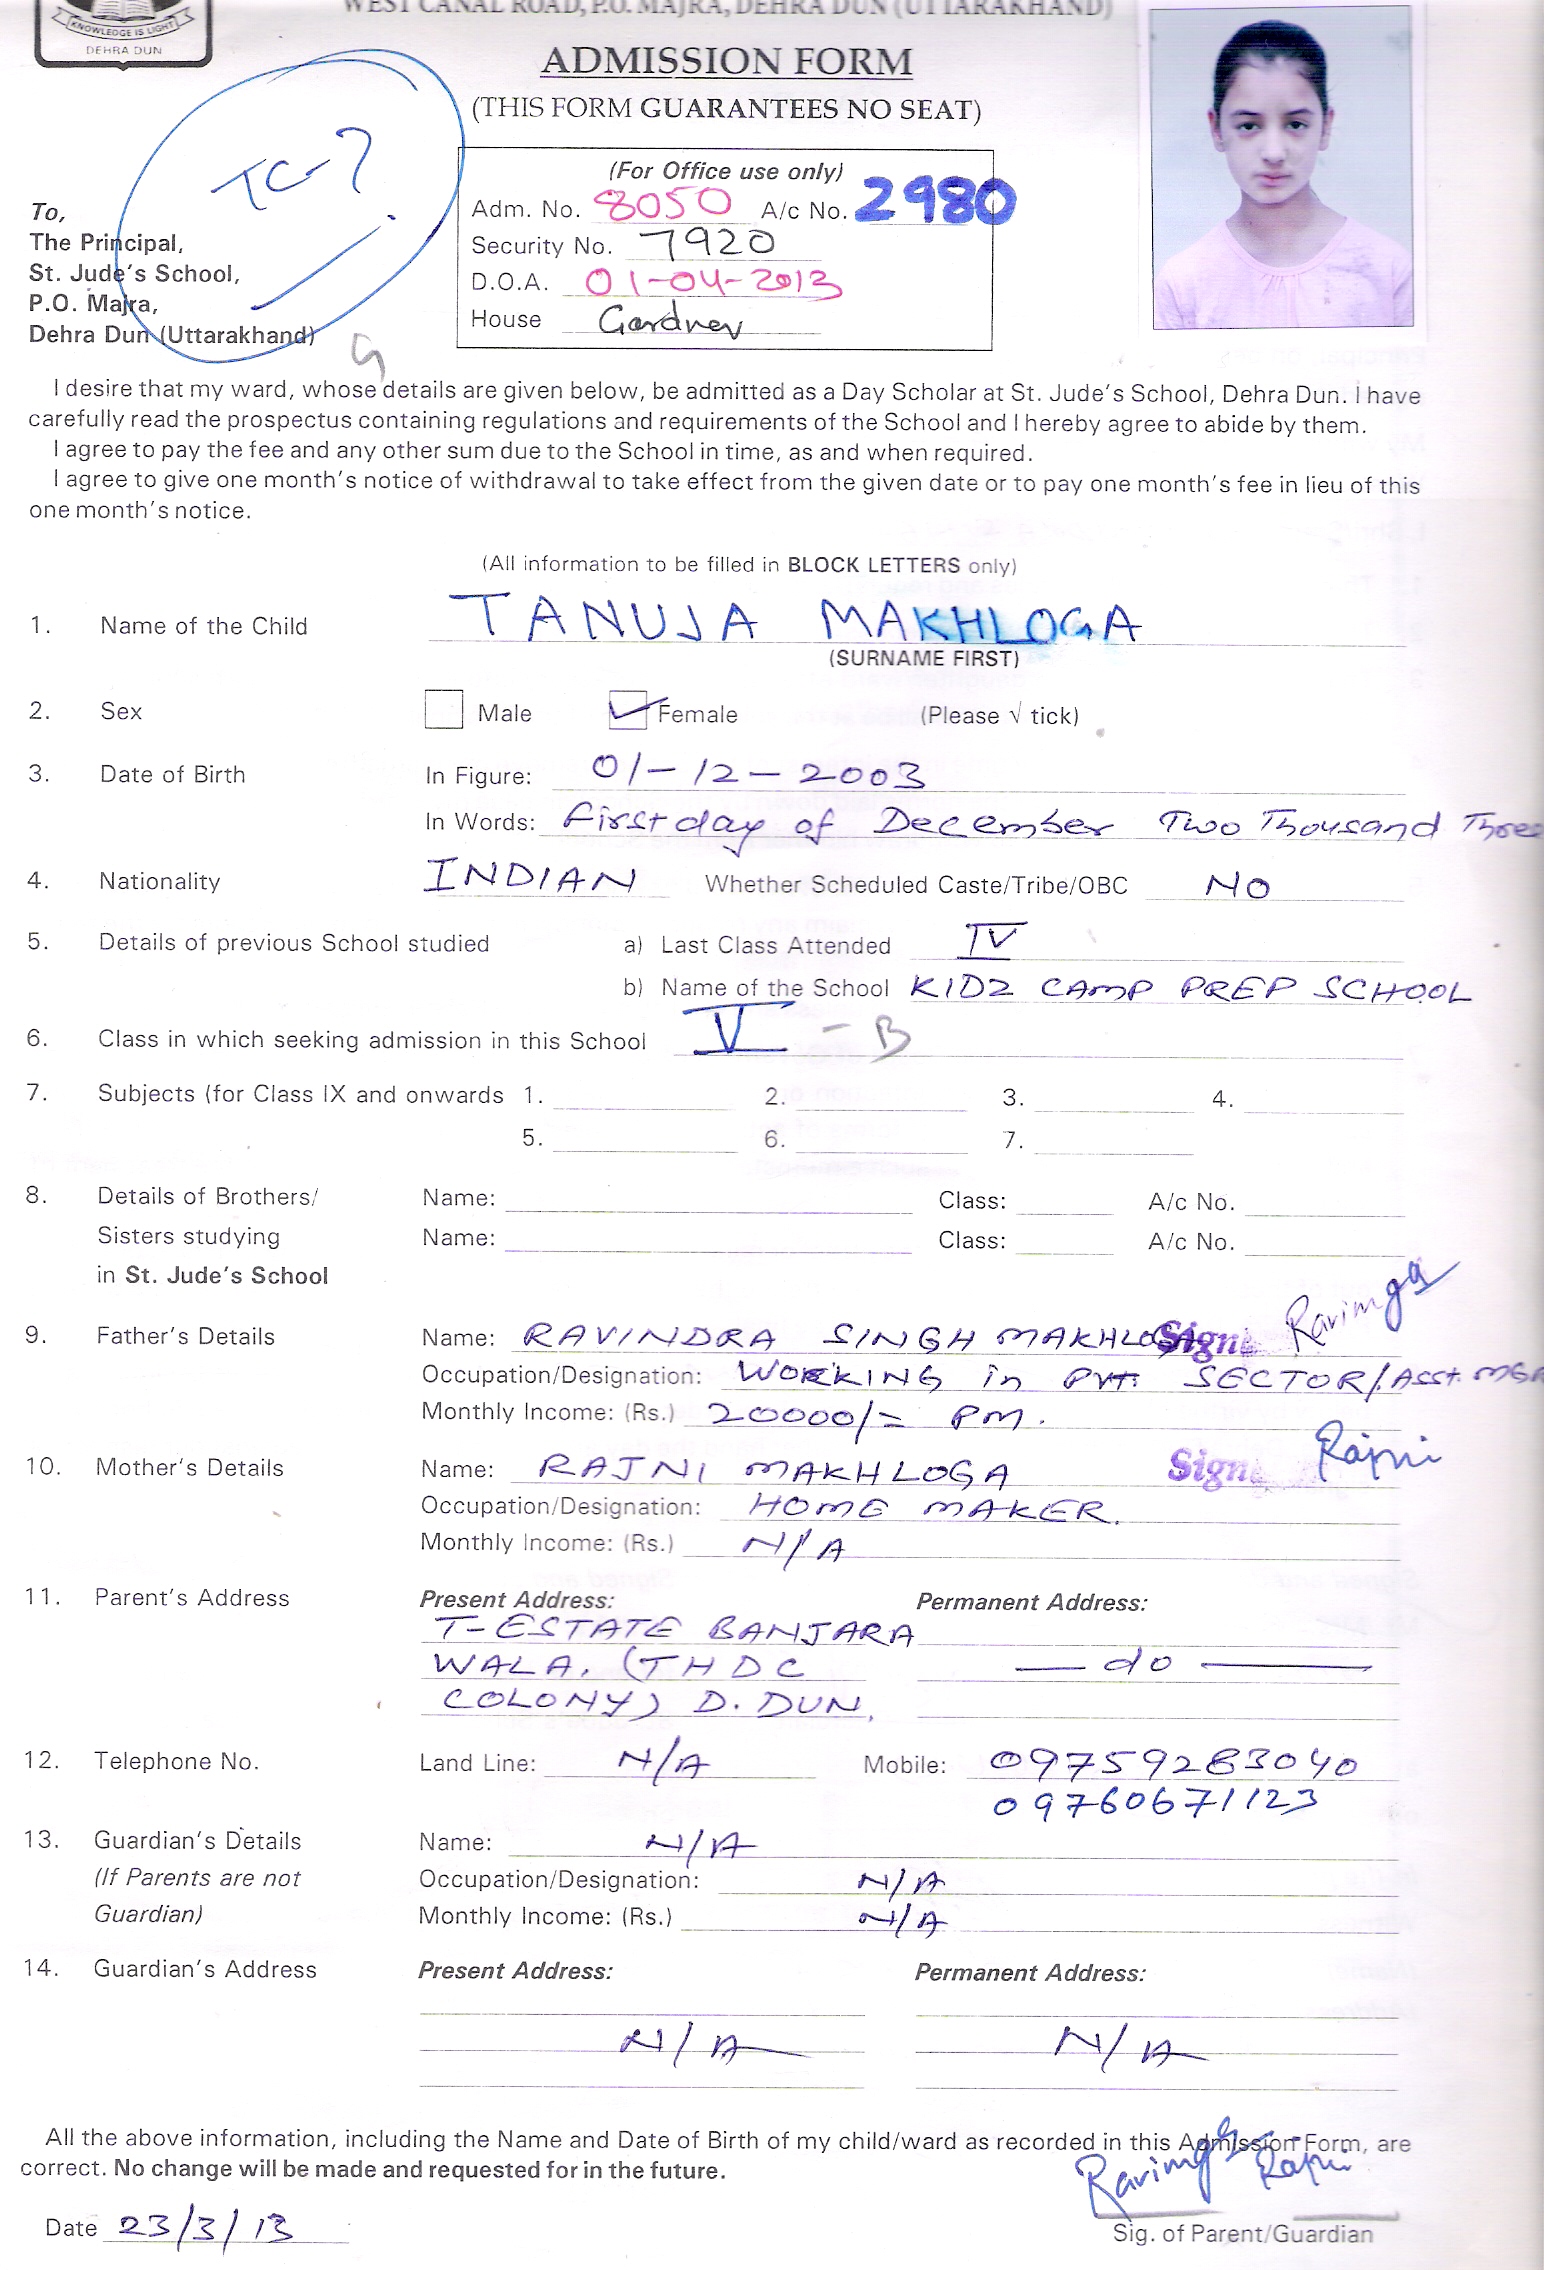 WEST CANAL ROAD, P.O. MAJRA, DEHRA DUN (UTTARAKHAND)
KNOWLEDGE IS LIGHT
DEHRA DUN
ADMISSION FORM
(THIS FORM GUARANTEES NO SEAT)
TC-?
(For Office use only)
Adm. No. 8050 A/c No. 2980
Security No. 7920
D.O.A. 01-04-2013
House Gardner
To,
The Principal,
St. Jude's School,
P.O. Majra,
Dehra Dun (Uttarakhand)
G
I desire that my ward, whose details are given below, be admitted as a Day Scholar at St. Jude's School, Dehra Dun. I have
carefully read the prospectus containing regulations and requirements of the School and I hereby agree to abide by them.
I agree to pay the fee and any other sum due to the School in time, as and when required.
I agree to give one month's notice of withdrawal to take effect from the given date or to pay one month's fee in lieu of this
one month's notice.
(All information to be filled in BLOCK LETTERS only)
1. Name of the Child TANUJA MAKHLOGA
(SURNAME FIRST)
2. Sex Male Female (Please √ tick)
3. Date of Birth In Figure: 01-12-2003
In Words: First day of December Two Thousand Three
4. Nationality INDIAN Whether Scheduled Caste/Tribe/OBC NO
5. Details of previous School studied a) Last Class Attended IV
b) Name of the School KIDZ CAMP PREP SCHOOL
6. Class in which seeking admission in this School V - B
7. Subjects (for Class IX and onwards 1. 2. 3. 4.
5. 6. 7.
8. Details of Brothers/ Name: Class: A/c No.
Sisters studying Name: Class: A/c No.
in St. Jude's School
9. Father's Details Name: RAVINDRA SINGH MAKHLOGA Sign.
Occupation/Designation: WORKING in PVT. SECTOR/Asst. MGR
Monthly Income: (Rs.) 20000/= PM.
10. Mother's Details Name: RAJNI MAKHLOGA Sign. Rajni
Occupation/Designation: HOME MAKER.
Monthly Income: (Rs.) N/A
11. Parent's Address Present Address: Permanent Address:
T-ESTATE BANJARA
WALA. (THDC — do —
COLONY) D. DUN.
12. Telephone No. Land Line: N/A Mobile: 09759283040
09760671123
13. Guardian's Details Name: N/A
(If Parents are not Occupation/Designation: N/A
Guardian) Monthly Income: (Rs.) N/A
14. Guardian's Address Present Address: Permanent Address:
N/A N/A
All the above information, including the Name and Date of Birth of my child/ward as recorded in this Admission Form, are
correct. No change will be made and requested for in the future.
Rajni
Date 23/3/13
Sig. of Parent/Guardian